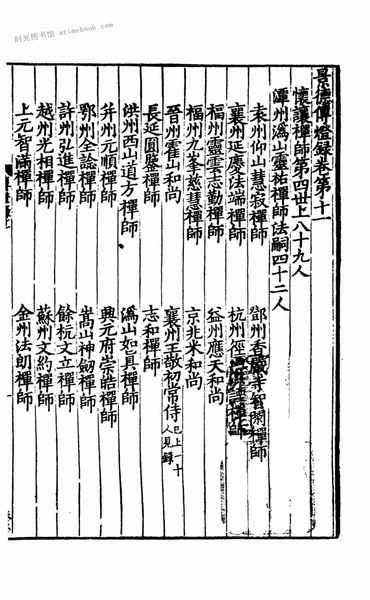 时光图书馆 atimebook.com
景德傳燈錄卷第十一
懷讓禪師第四世上八十九人
潭州溈山靈祐禪師法嗣四十二人
袁州仰山慧寂禪師
鄧州香嚴寺智閑禪師
襄州延慶法端禪師
杭州徑山洪諲禪師
福州靈雲志勤禪師
益州應天和尚
福州九峯慈慧禪師
京兆米和尚
晉州霍山和尚
襄州王敬初常侍已上一十人見錄
長延圓鑒禪師
志和禪師
洪州西山道方禪師
溈山如真禪師
并州元順禪師
興元府崇皓禪師
鄂州全諗禪師
嵩山神劒禪師
許州弘進禪師
餘杭文立禪師
越州光相禪師
蘇州文約禪師
上元智滿禪師
金州法朗禪師